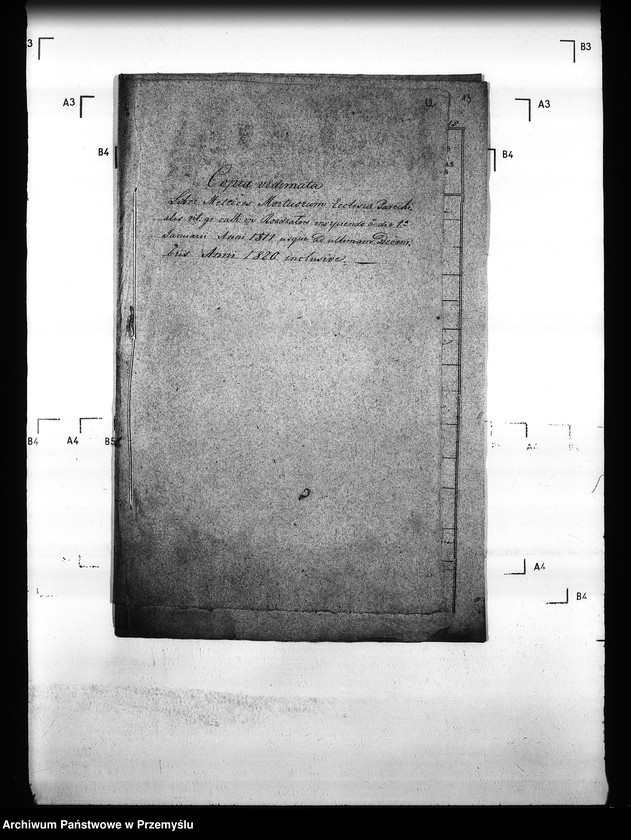 12 13
15
Copia vidimata
Libri Metrices Mortuorum Ecclesiae Parochi
alis rit. gr. cath. in incipiendo a die 1a
Januarii Anni 1811 usque ad ultimam Decem
bris Anni 1820 inclusive.
B3
A3
A3
B4
B4
B4
A4
B5
A4
A4
B4
Archiwum Państwowe w Przemyślu